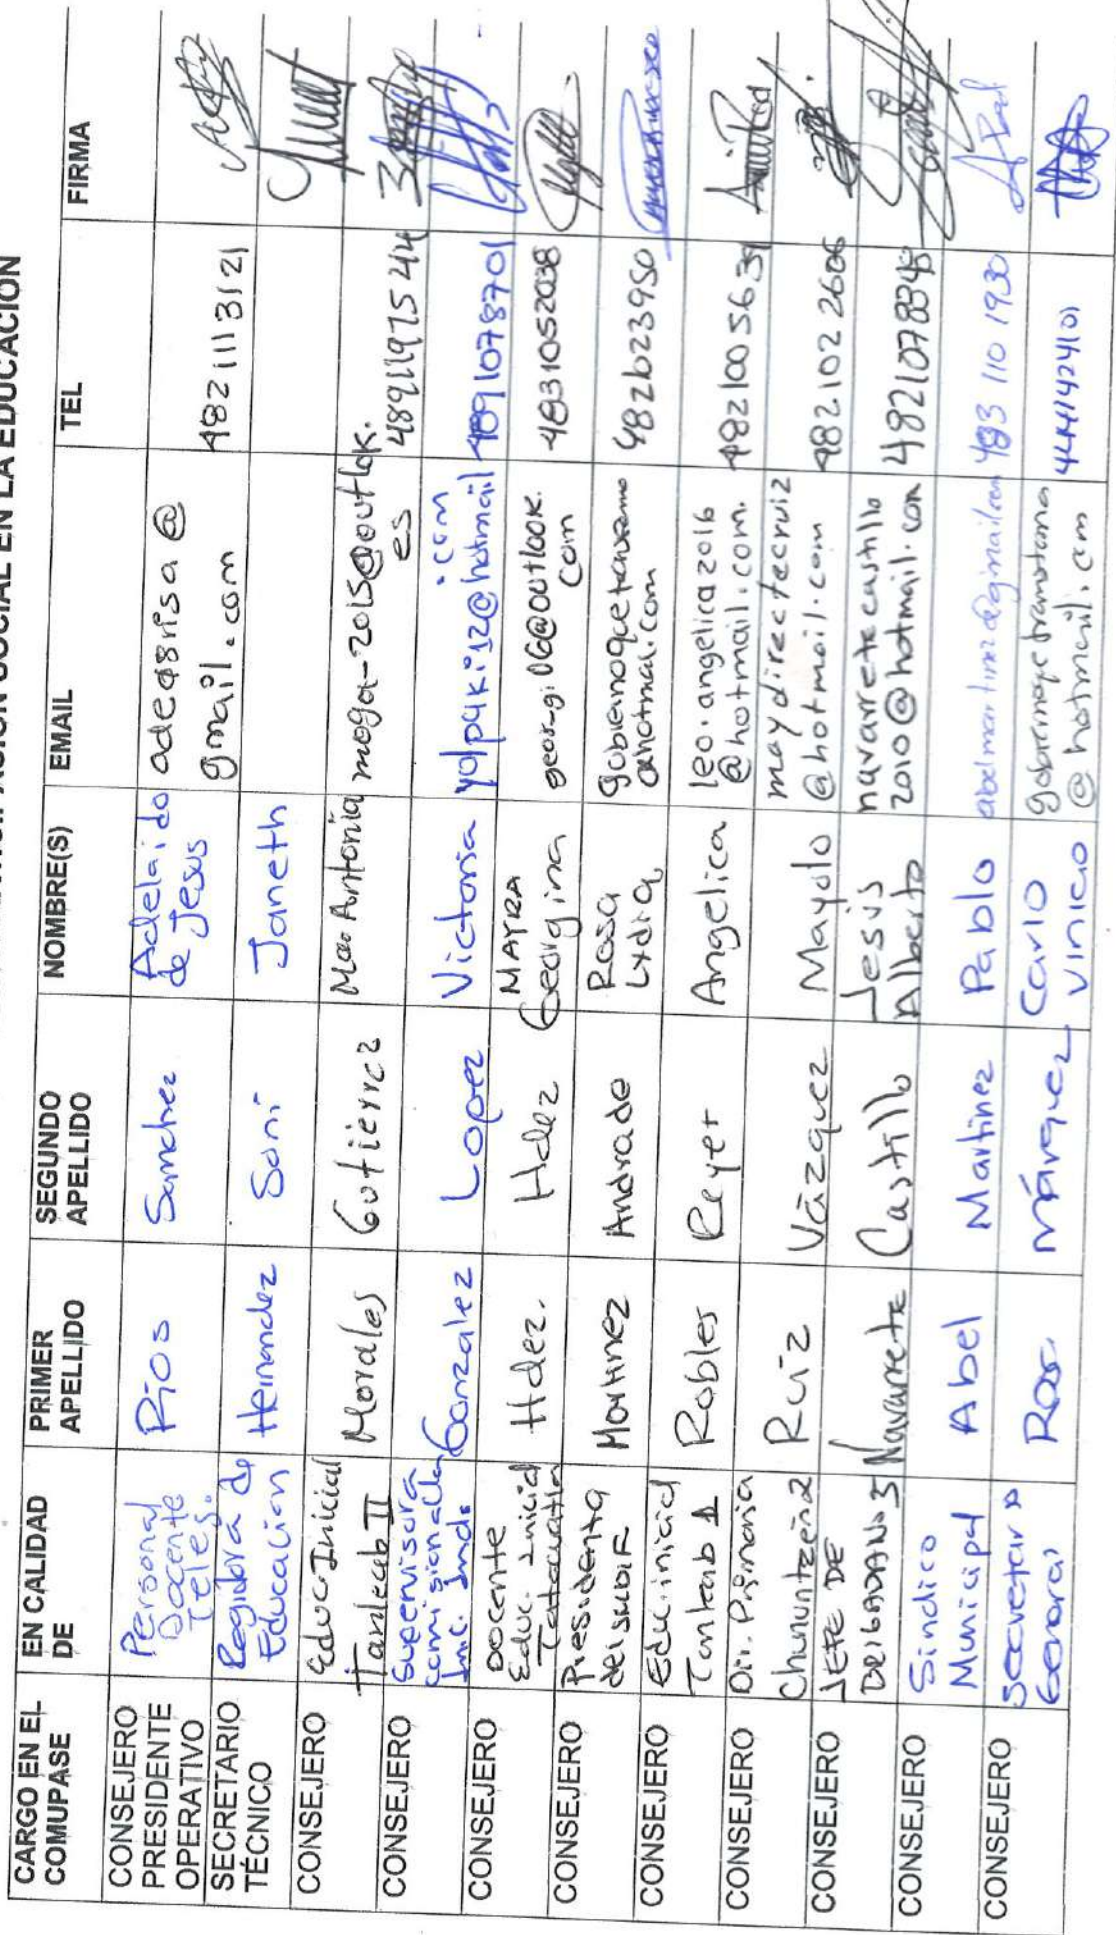 ACIÓN SOCIAL EN LA EDUCACIÓN
CARGO EN EL COMUPASE
EN CALIDAD DE
PRIMER APELLIDO
SEGUNDO APELLIDO
NOMBRE(S)
EMAIL
TEL
FIRMA
CONSEJERO PRESIDENTE OPERATIVO
Personal Docente Teles.
Ríos
Sanchez
Adelaido de Jesus
gmail.com
482 111 3121
SECRETARIO TÉCNICO
Regidora de Educación
Hernandez
Soni
Janeth
CONSEJERO
Educ. Inicial Tanleab II
Morales
Gutierrez
Ma. Antonia
moga-2015@outlok.es
CONSEJERO
Supervisora comisionada Inc. Ind.
Gonzalez
Lopez
Victoria
yolpaki12@hotmail.com
4891078701
CONSEJERO
Docente Educ. Inicial
Hdez.
Hdez
MAYRA Georgina
georgi06@outlook.com
4831052038
CONSEJERO
Presidenta del SMDIF
Martinez
Andrade
Rosa Lydia
4821023950
CONSEJERO
Educ. inicial Tanleab 1
Robles
Reyer
Angelica
leo.angelica2016@hotmail.com.
4821005631
CONSEJERO
Dir. Primaria Chununtzen 2
Ruiz
Vázquez
Mayolo
maydirectecruiz@hotmail.com
4821022606
CONSEJERO
JEFE DE
Navarrete
Castillo
Jesús Alberto
navarretecastillo2010@hotmail.com
CONSEJERO
Sindico Municipal
Abel
Martinez
Pablo
483 110 1930
CONSEJERO
Secretario General
Márquez
Carlo Vinicio
@hotmail.com
4441424101